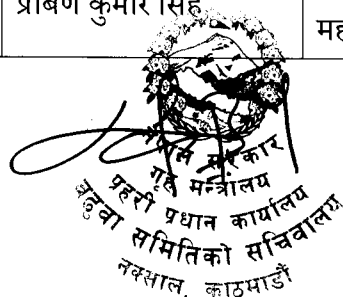 प्रबिण कुमार सिंह
नेपाल सरकार
गृह मन्त्रालय
प्रहरी प्रधान कार्यालय
बढुवा समितिको सचिवालय
नक्साल, काठमाडौं